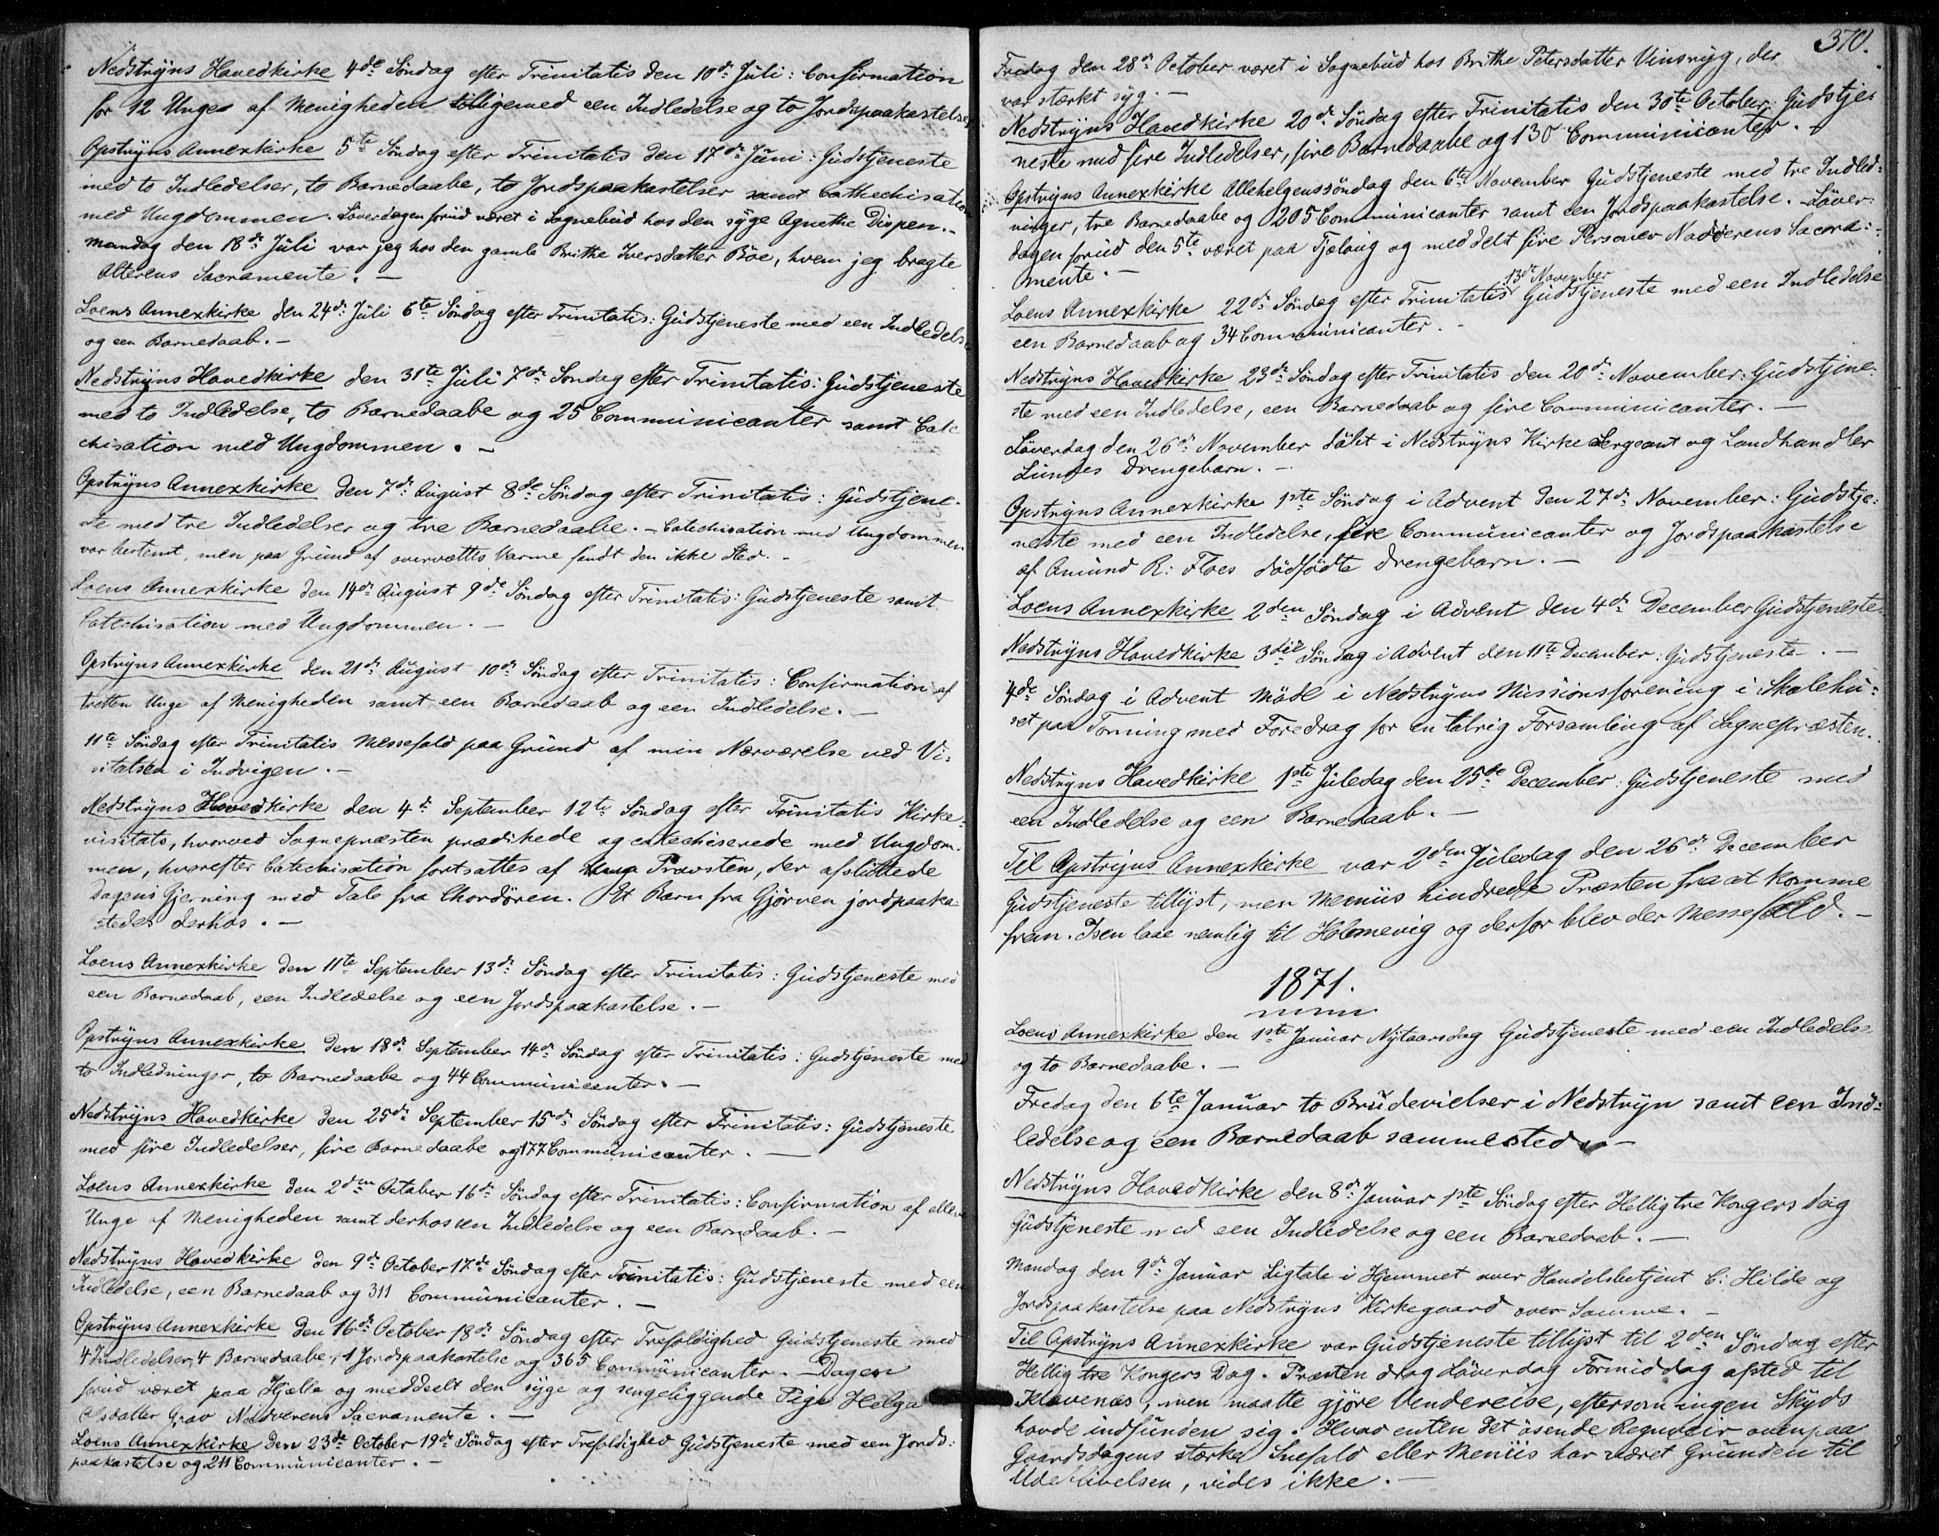 Nedstryns Hovedkirke 4de Søndag efter Trinitatis den 10de Juli: Confirmation
for 12 Unge af Menigheden tilligemed een Indledelse og to Jordspaakastelser
Opstryns Annexkirke 5te Søndag efter Trinitatis den 17de Juni: Gudstjeneste
med to Indledelser, to Barnedaabe, to Jordspaakastelser samt Cathechisation
med Ungdommen. Løverdagen forud været i Sognebud hos den syge Agnethe Dispen.-
Mandag den 18de Juli var jeg hos den gamle Brithe Iversdatter Böe, hvem jeg bragte
Alterens Sacramente. -
Loens Annexkirke den 24de Juli 6te Søndag efter Trinitatis: Gudstjeneste med een Indledelse
og een Barnedaab. -
Nedstryns Hovedkirke den 31te Juli 7de Søndag efter Trinitatis: Gudstjeneste
med to Indledelse, to Barnedaabe og 25 Communicanter samt Cate
chisation med Ungdommen. -
Opstryns Annexkirke den 7de August 8de Søndag efter Trinitatis: Gudstjene-
ste med tre Indledelser og tre Barnedaabe. - Catechisation med Ungdommen
var bestemt, men paa Grund af overvættes Varme fandt den ikke Sted. -
Loens Annexkirke den 14de August 9de Søndag efter Trinitatis: Gudstjeneste samt
Catechisation med Ungdommen. -
Opstryns Annexkirke den 21de August 10de Søndag efter Trinitatis: Confirmation af
tretten Unge af Menigheden samt een Barnedaab og een Indledelse. -
11te Søndag efter Trinitatis Messefald paa Grund af min Nærværelse ved Vi-
sitatsen i Indvigen. -
Nedstryns Hovedkirke den 4de September 12te Søndag efter Trinitatis Kirke-
visitats, hvorved Sognepræsten prædikede og catechiserede med Ungdom-
men, hvorefter Catechisation fortsattes af Provsten, der afsluttede
Dagens Gjerning med Tale fra Chordören. Et Barn fra Gjörven jordpaaka-
stedes derhos. -
Loens Annexkirke den 11te September 13de Søndag efter Trinitatis: Gudstjeneste med
een Barnedaab, een Indledelse og een Jordspaakastelse. -
Opstryns Annexkirke den 18de September 14de Søndag efter Trinitatis: Gudstjeneste med
to Indledninger, to Barnedaabe og 44 Communicanter. -
Nedstryns Hovedkirke den 25de September 15de Søndag efter Trinitatis: Gudstjeneste
med fire Indledelser, fire Barnedaabe og 177 Communicanter. -
Loens Annexkirke den 2den October 16de Søndag efter Trinitatis: Confirmation af elleve
Unge af Menigheden samt derhos een Indledelse og een Barnedaab. -
Nedstryns Hovedkirke den 9de October 17de Søndag efter Trinitatis: Gudstjeneste med een
Indledelse, een Barnedaab og 311 Communicanter. -
Opstryns Annexkirke den 16de October 18de Søndag efter Trefoldighed Gudstjeneste med
4 Indledelser, 4 Barnedaabe, 1 Jordspaakastelse og 365 Communicanter. - Dagen
forud været paa Hjelle og meddeelt den syge og sengeliggende Pige Helga
Olsdatter Grov Nadverens Sacramente. -
Loens Annexkirke den 23de October 19de Søndag efter Trefoldighed Gudstjeneste med een Jords-
paakastelse og 211 Communicanter. -
370.
Fredag den 28de October været i Sognebud hos Brithe Petersdatter Vinsryg, der
var stærkt syg. -
Nedstryns Hovedkirke 20de Søndag efter Trinitatis den 30te October: Gudstje-
neste med fire Indledelser, fire Barnedaabe og 130 Communicanter. -
Opstryns Annexkirke Allehelgenssøndag den 6te November Gudstjeneste med tre Indled-
ninger, tre Barnedaabe og 205 Communicanter samt een Jordspaakastelse. - Løver-
dagen forud den 5te været paa Fjelaug og meddelt fire Personer Nadverens Sacra-
mente. -
13de November
Loens Annexkirke 22de Søndag efter Trinitatis Gudstjeneste med een Indledelse
een Barnedaab og 34 Communicanter. -
Nedstryns Hovedkirke 23de Søndag efter Trinitatis den 20de November: Gudstjene-
ste med een Indledelse, een Barnedaab og fire Communicanter. -
Løverdag den 26de November døbt i Nedstryns Kirke Sergeant og Landhandler
Lundes Drengebarn. -
Opstryns Annexkirke 1ste Søndag i Advent den 27de November: Gudstje-
neste med een Indledelse, fire Communicanter og Jordspaakastelse
af Amund R: Floes dødfødte Drengebarn. -
Loens Annexkirke 2den Søndag i Advent den 4de December Gudstjeneste.
Nedstryns Hovedkirke 3die Søndag i Advent den 11te December: Gudstjeneste. -
4de Søndag i Advent Møde i Nedstryns Missionsforening i Skolehu-
set paa Tonning med Foredrag for en talrig Forsamling af Sognepræsten.
Nedstryns Hovedkirke 1ste Juledag den 25de December: Gudstjeneste med
een Indledelse og een Barnedaab. -
Til Opstryns Annexkirke var 2den Juledag den 26de December
Gudstjeneste tillyst, men Meniis hindrede Præsten fra at komme
frem. Isen laae nemlig til Holmevig og derfor blev der Messefald. -
1871.
Loens Annexkirke den 1ste Januar Nytaarsdag Gudstjeneste med een Indledelse
og to Barnedaabe. -
Fredag den 6te Januar to Brudevielser i Nedstryn samt een Ind-
ledelse og een Barnedaab sammesteds. -
Nedstryns Hovedkirke den 8de Januar 1ste Søndag efter Hellig tre Kongers Dag
Gudstjeneste med een Indledelse og een Barnedaab. -
Mandag den 9de Januar Ligtale i Hjemmet over Handelsbetjent C: Hilde og
Jordspaakastelse paa Nedstryns Kirkegaard over Samme. -
Til Opstryns Annexkirke var Gudstjeneste tillyst til 2den Søndag efter
Hellig tre Kongers Dag. Præsten drog Løverdag Formiddag afsted til
Klovenæs, men maatte gjöre Vendereise, eftersom ingen Skyds
havde indfunden sig. Hvad enten det øsende Regnveir ovenpaa
Gaarsdagens stærke Snefald eller Meniis har været Grunden til
Udeblivelsen, vides ikke. -